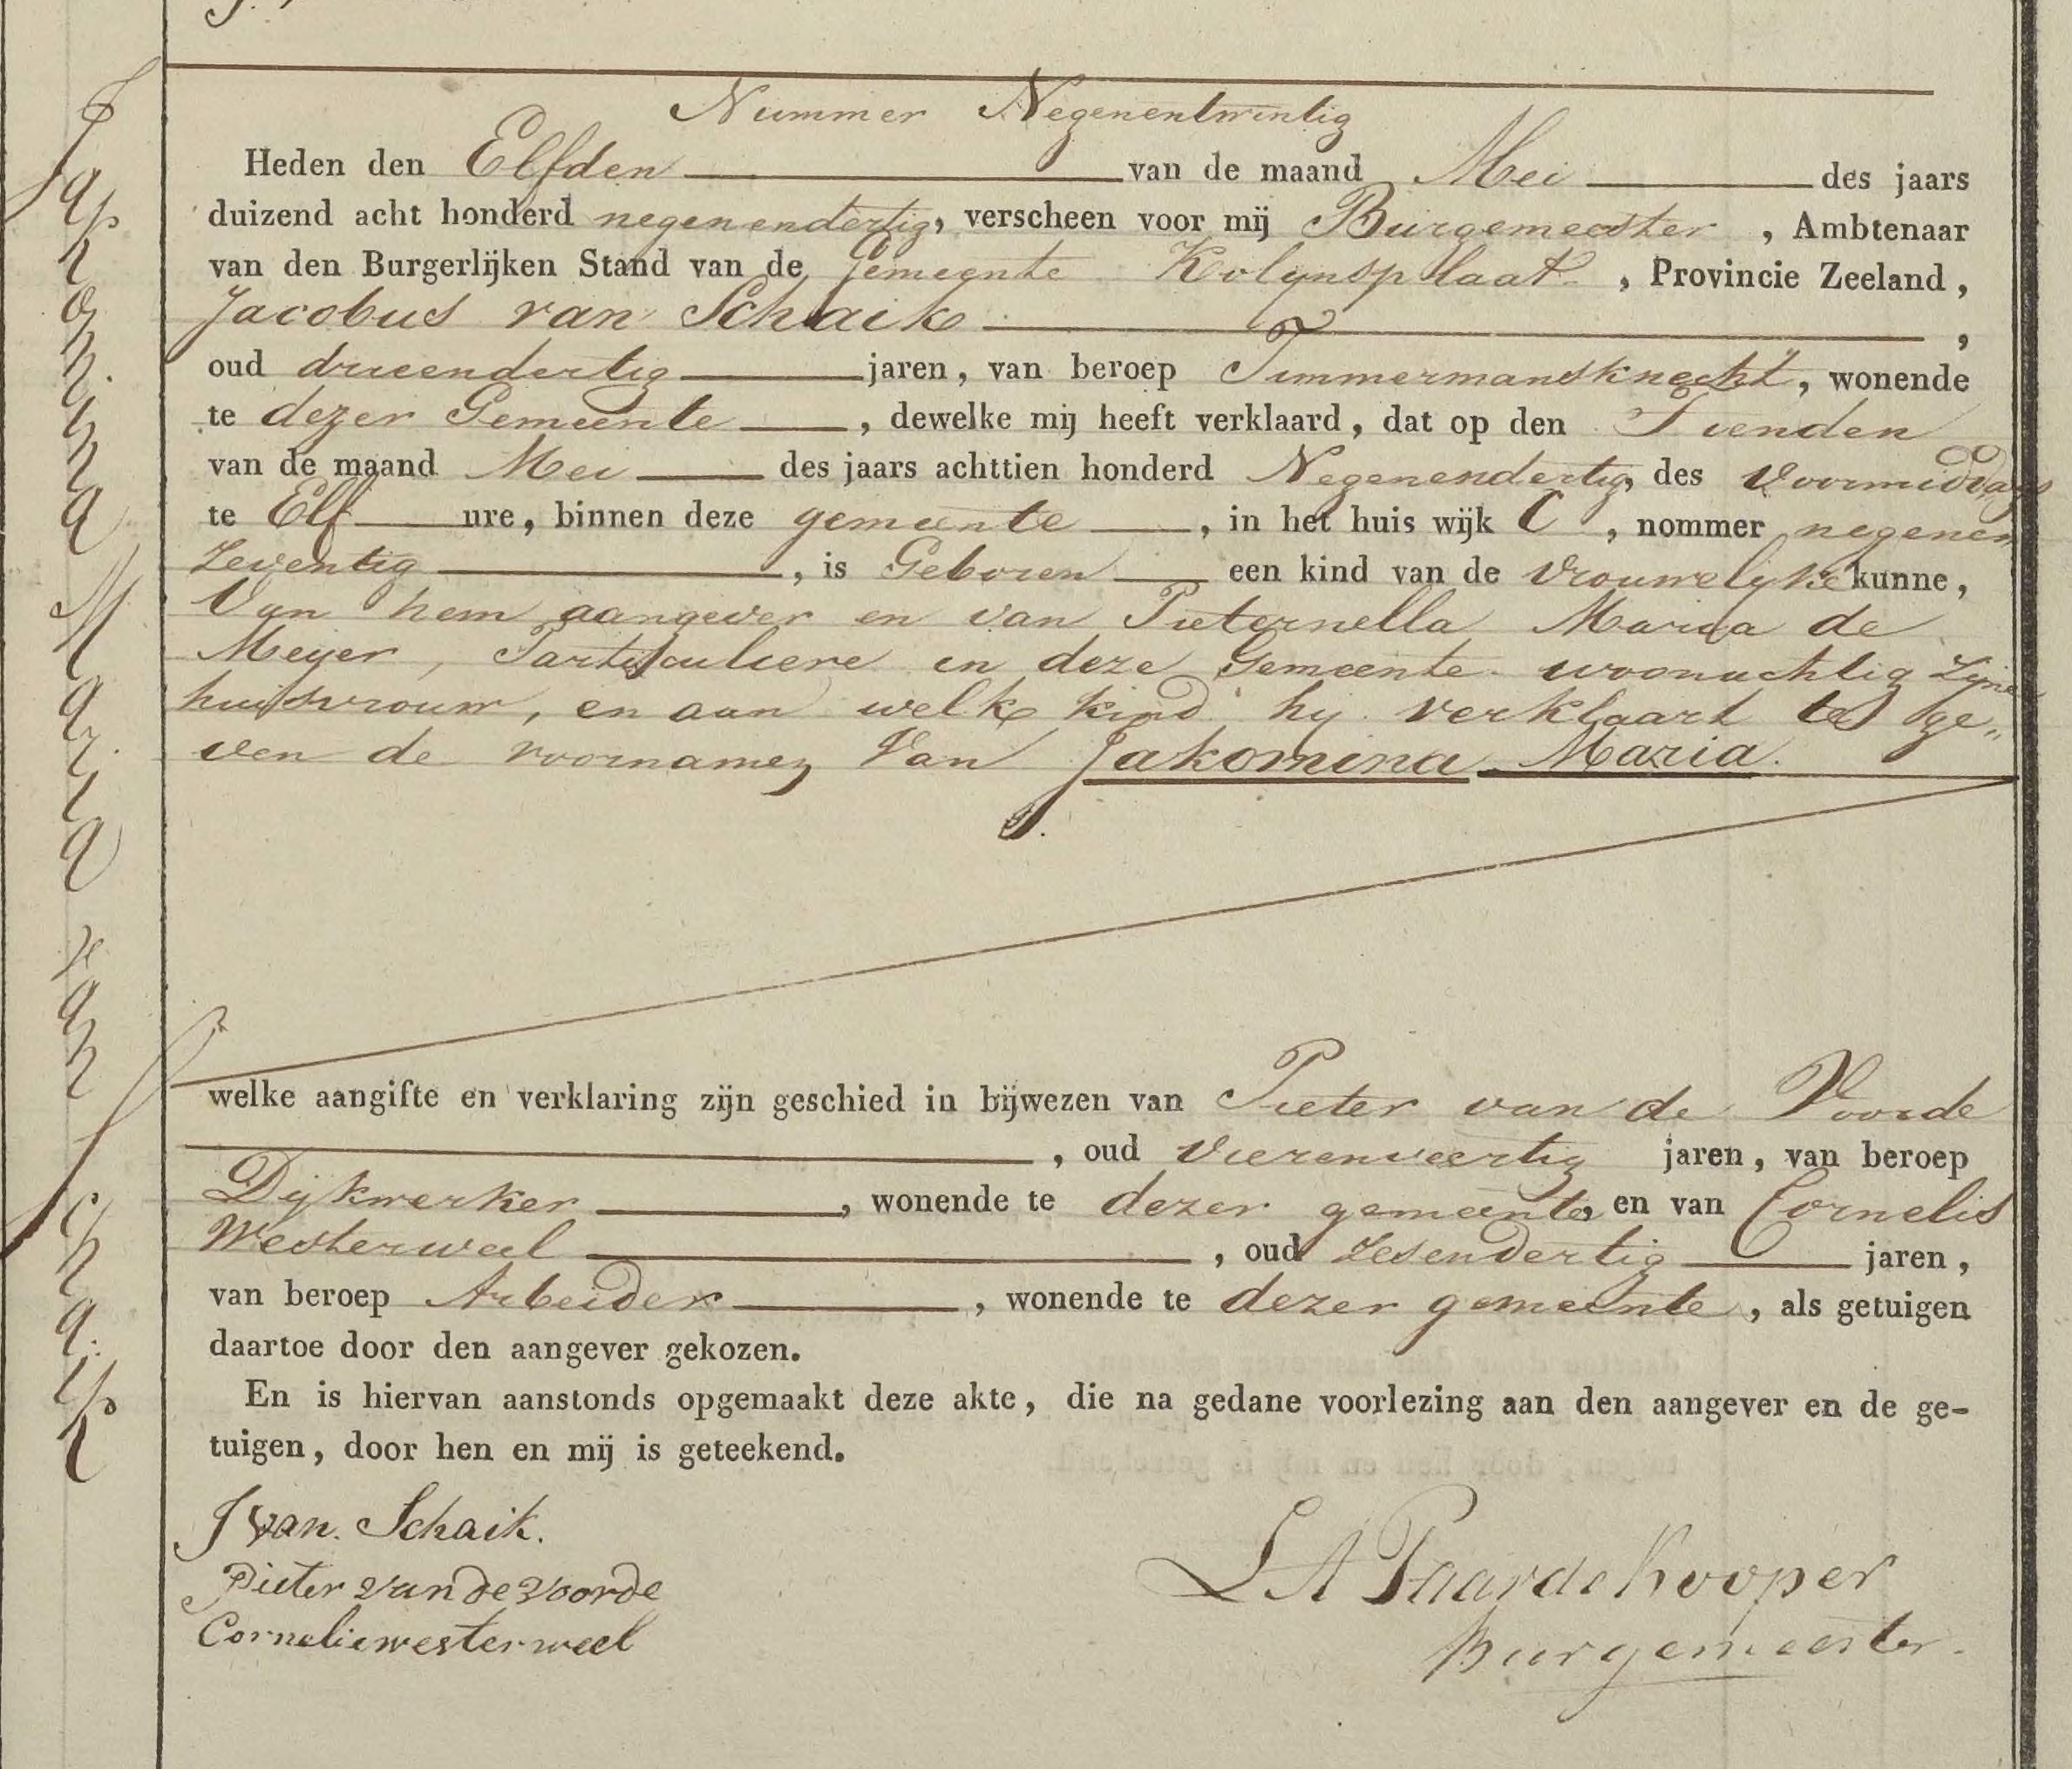 Nummer Negenentwintig
Heden den Elfden van de maand Mei des jaars
duizend acht honderd negenendertig, verscheen voor mij Burgemeester, Ambtenaar
van den Burgerlijken Stand van de Gemeente Kolynsplaat, Provincie Zeeland,
Jacobus van Schaik,
oud drieendertig jaren, van beroep Timmermansknecht, wonende
te dezer Gemeente, dewelke mij heeft verklaard, dat op den Tienden
van de maand Mei des jaars achttien honderd Negenendertig, des voormiddags
te Elf ure, binnen deze gemeente, in het huis wijk C, nommer negenen
Zeventig, is Geboren een kind van de vrouwelyke kunne,
Van hem aangever en van Pieternella Maria de
Meijer, Particuliere in deze Gemeente woonachtig zyne
huisvrouw, en aan welk kind hy verklaart te ge„
ven de voornamen Van Jakomina Maria.
welke aangifte en verklaring zijn geschied in bijwezen van Pieter van de Voorde
, oud vierenveertig jaren, van beroep
Dijkwerker, wonende te dezer gemeente, en van Cornelis
Westerweel, oud zesendertig jaren,
van beroep Arbeider, wonende te dezer gemeente, als getuigen
daartoe door den aangever gekozen.
En is hiervan aanstonds opgemaakt deze akte, die na gedane voorlezing aan den aangever en de ge-
tuigen, door hen en mij is geteekend.
J van. Schaik.
Pieter van de voorde
Cornelis westerweel
L A Paardekooper
Burgemeester.
Jakomina Maria van Schaik